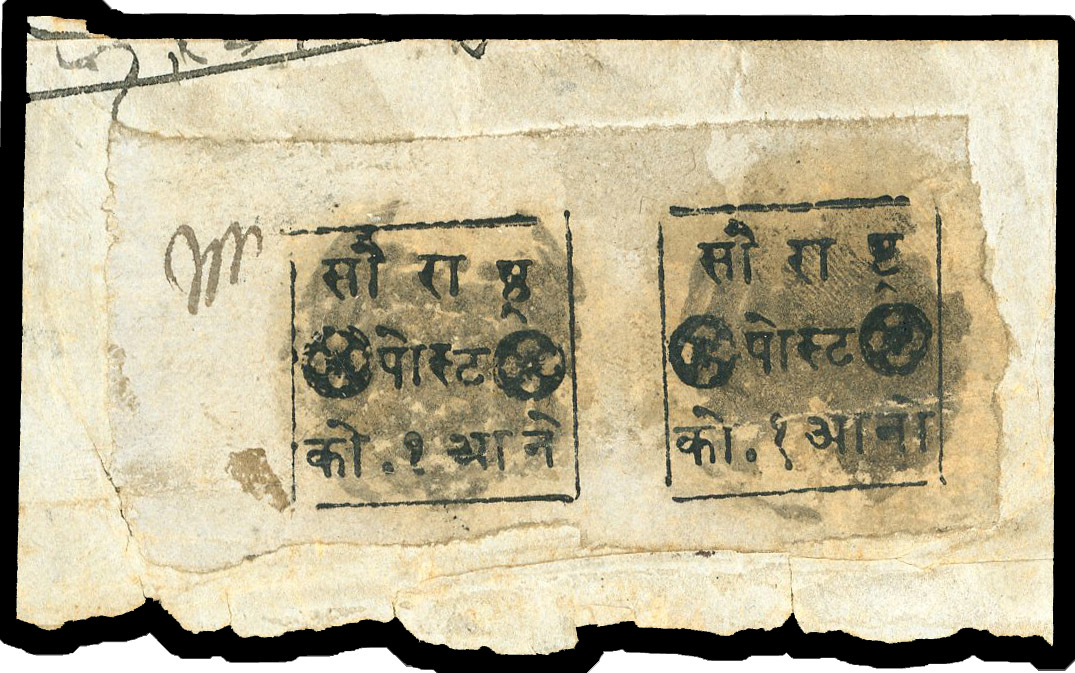 सौ रा ष्ट्र
पोस्ट
को. १ आने
सौ रा ष्ट्र
पोस्ट
को. १ आनो